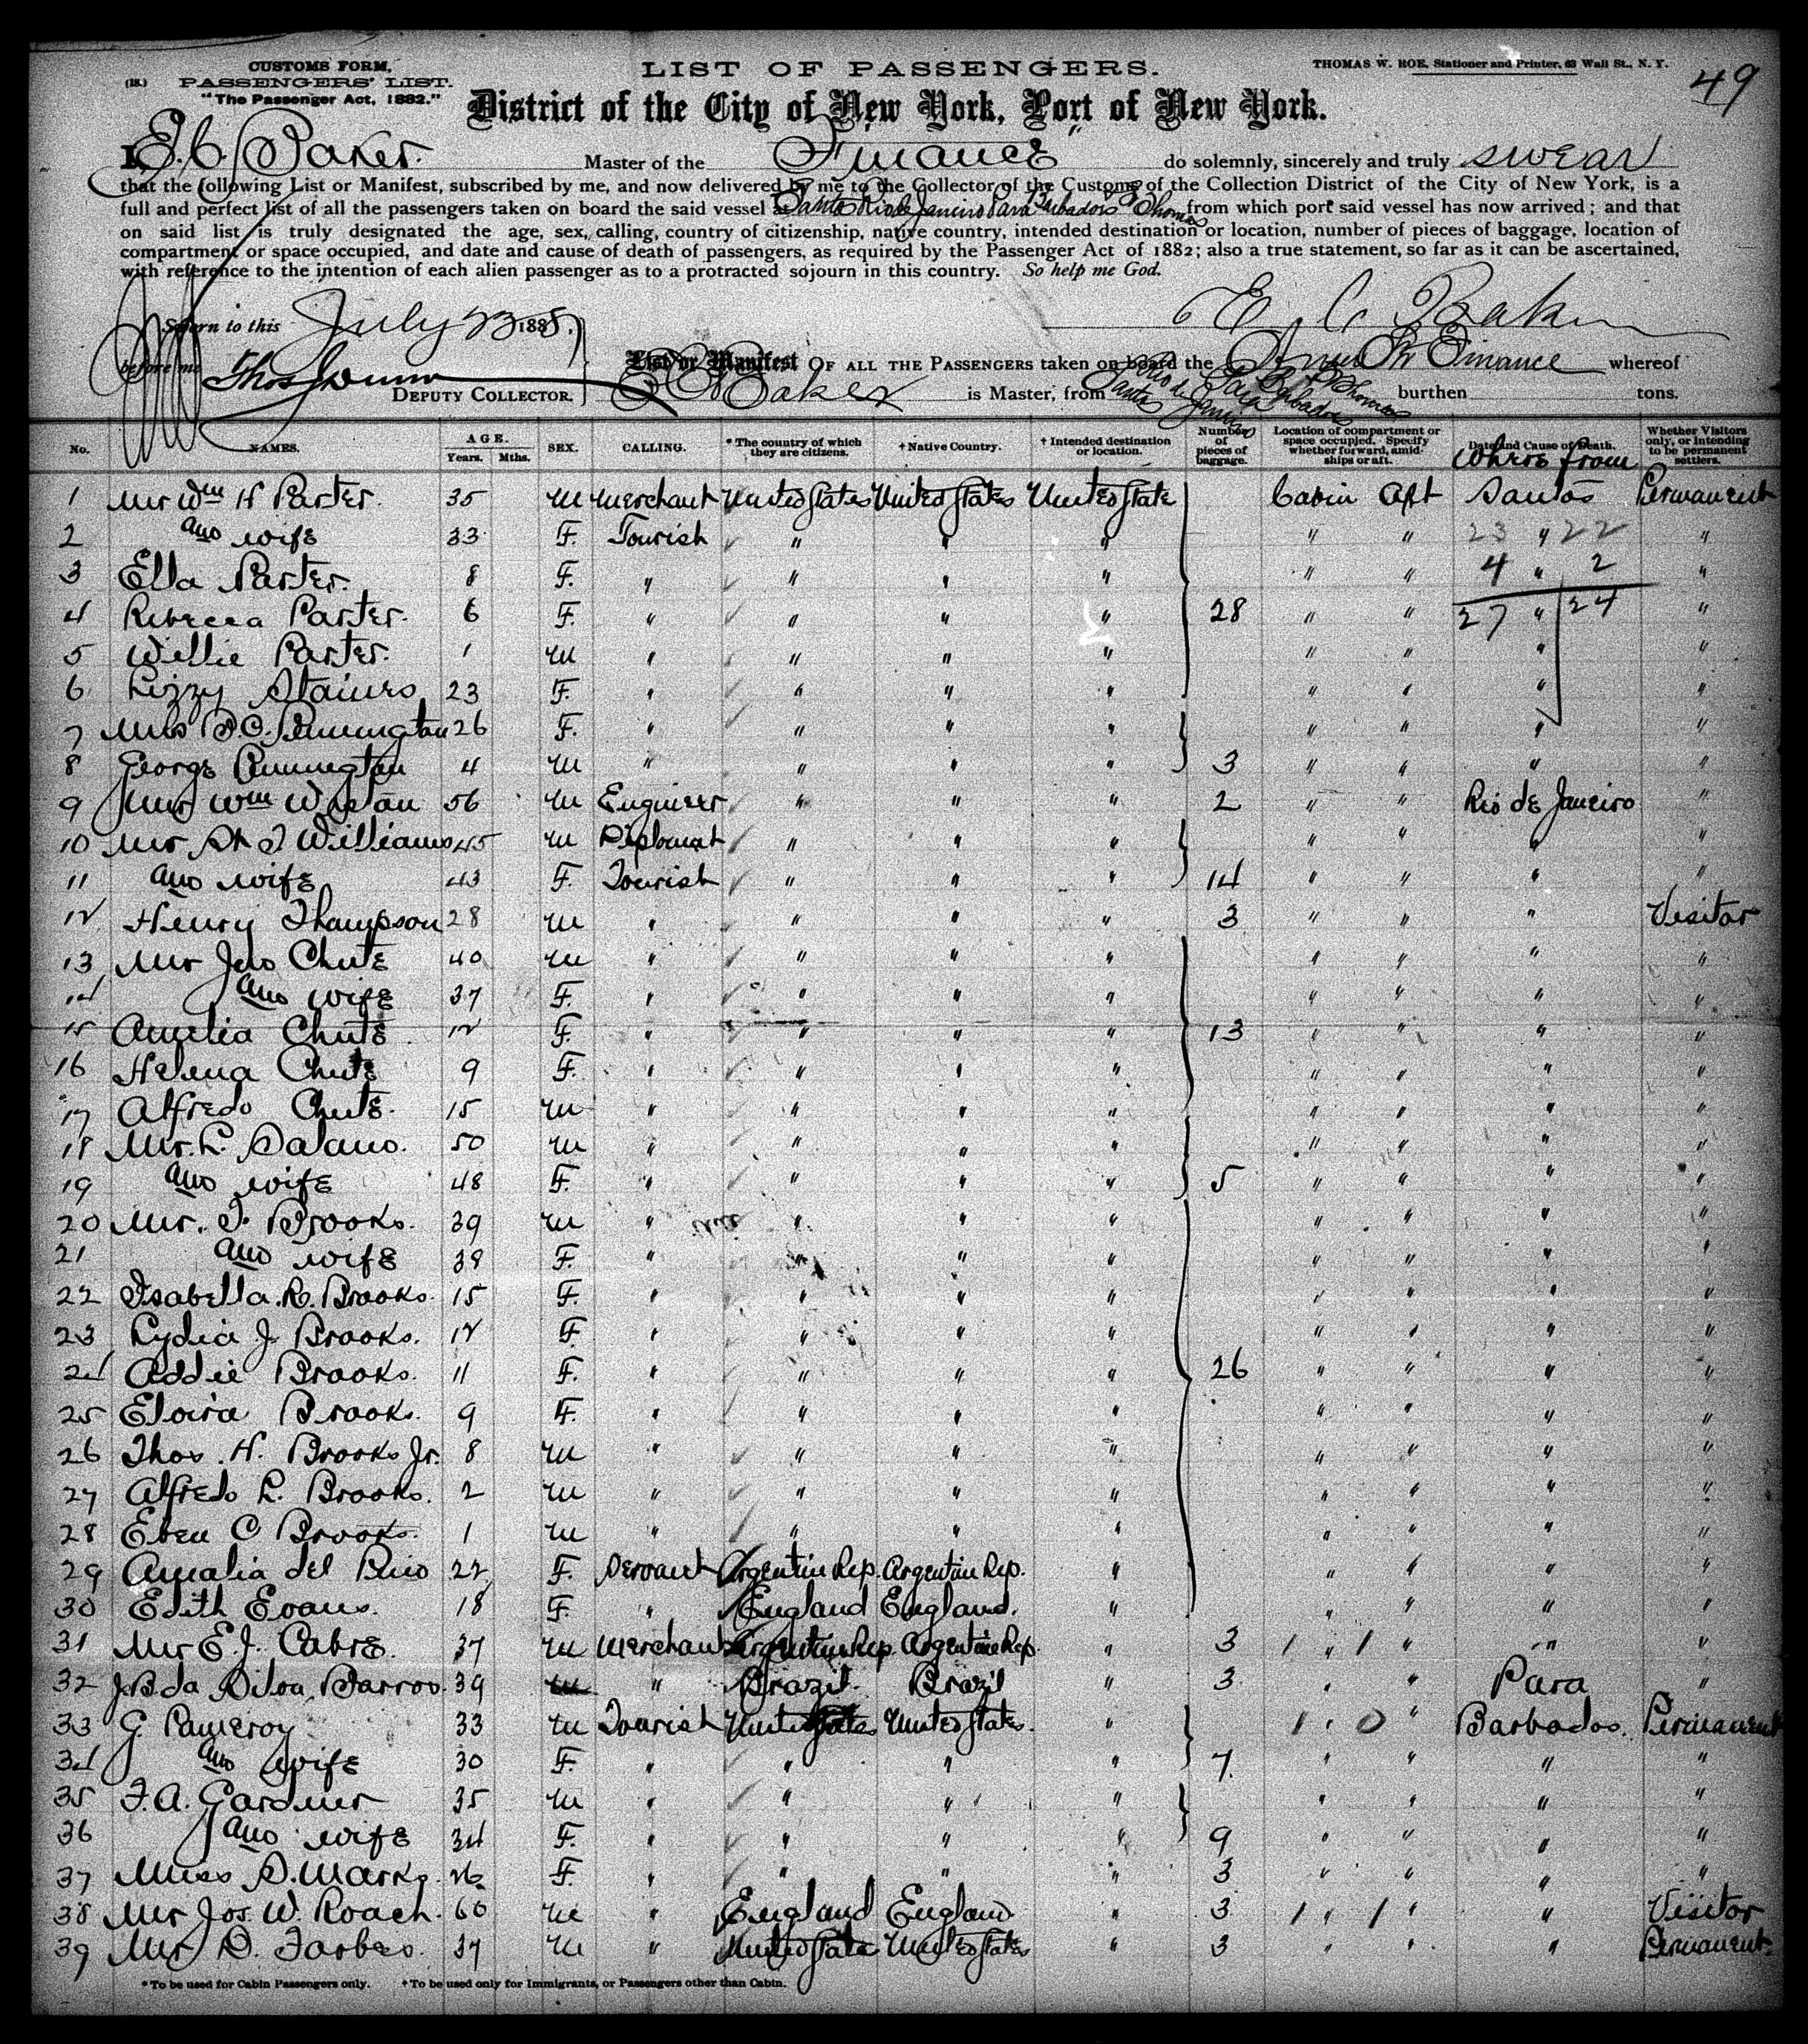 49
CUSTOMS FORM.
(18.) PASSENGERS' LIST.
"The Passenger Act, 1882."
LIST OF PASSENGERS.
THOMAS W. ROE, Stationer and Printer, 63 Wall St., N. Y.
District of the City of New York, Port of New York.
I, E. C. Baker. Master of the Finance do solemnly, sincerely and truly swear
that the following List or Manifest, subscribed by me, and now delivered by me to the Collector of the Customs of the Collection District of the City of New York, is a
full and perfect list of all the passengers taken on board the said vessel at Santos Rio de Janeiro Para Barbados St Thomas from which port said vessel has now arrived; and that
on said list is truly designated the age, sex, calling, country of citizenship, native country, intended destination or location, number of pieces of baggage, location of
compartment or space occupied, and date and cause of death of passengers, as required by the Passenger Act of 1882; also a true statement, so far as it can be ascertained,
with reference to the intention of each alien passenger as to a protracted sojourn in this country. So help me God.
Sworn to this July 23 1885. E C Baker
before me Thos J Dunn
DEPUTY COLLECTOR.
List or Manifest OF ALL THE PASSENGERS taken on board the Finance whereof
E C Baker is Master, from Santos Rio de Janeiro Para Barbados St Thomas burthen tons.
No. NAMES. AGE. Years. Mths. SEX. CALLING. *The country of which they are citizens. †Native Country. †Intended destination or location. Number of pieces of baggage. Location of compartment or space occupied. Specify whether forward, amidships or aft. Date and Cause of Death. Where from Whether Visitors only, or intending to be permanent settlers.
1 Mr Wm H Parter. 35 M Merchant United States United States United State Cabin Aft Santos Permanent
2 and wife 33 F. Tourist " " " " " 23 " 22 "
3 Ella Parter. 8 F. " " " " " " 4 " 2 "
4 Rebecca Parter. 6 F. " " " " 28 " " 27 " 24 "
5 Willie Parter. 1 M " " " " " " " "
6 Lizzy Stainers 23 F. " " " " " " " "
7 Mrs P.C. Pennington 26 F. " " " " " " " "
8 George Pennington 4 M " " " " 3 " " " "
9 Mr Wm Wistan 56 M Engineer " " " 2 " " Rio de Janeiro "
10 Mr Williams 45 M Diplomat " " " " " " "
11 and wife 43 F. Tourist " " " 14 " " " "
12 Henry Thampson 28 M " " " " 3 " " " Visitor
13 Mr Jno Chute 40 M " " " " " " " "
14 and wife 37 F. " " " " " " " "
15 Amelia Chute 12 F. " " " " 13 " " " "
16 Helena Chute 9 F. " " " " " " " "
17 Alfredo Chute. 15 M " " " " " " " "
18 Mr. L. Salano. 50 M " " " " " " " "
19 and wife 48 F. " " " " 5 " " " "
20 Mr. T. Brooks. 39 M " " " " " " " "
21 and wife 38 F. " " " " " " " "
22 Isabella. R. Brooks. 15 F. " " " " " " " "
23 Lydia J. Brooks. 12 F. " " " " " " " "
24 Addie Brooks. 11 F. " " " " 26 " " " "
25 Eloira Brooks. 9 F. " " " " " " " "
26 Thos. H. Brooks Jr. 8 M " " " " " " " "
27 Alfredo L. Brooks. 2 M " " " " " " " "
28 Eben C Brooks. 1 M " " " " " " " "
29 Amalia del Rino 22 F. Servant Argentin Rep. Argentin Rep. " " " " "
30 Edith Evans. 18 F. " England England. " " " " "
31 Mr E. J. Cabre. 37 M Merchant Argentine Rep. Argentine Rep. " 3 1 " 1 " " "
32 J B da Silva Barros. 39 M " Brazil. Brazil " 3 " " Para "
33 G Pameroy 33 M Tourist United States United States. " 1 " 0 " Barbados. Permanent
34 and wife 30 F. " " " " 7. " " " "
35 F. A. Gardner 35 M " " " " " " " "
36 and wife 34 F. " " " " 9 " " " "
37 Miss S. Marks. 26 F. " " " " 3 " " " "
38 Mr Jos. W. Roach. 60 M " England England " 3 1 " 1 " " Visitor
39 Mr D. Farbes. 37 M " United State United States " 3 " " " Permanent.
*To be used for Cabin Passengers only. †To be used only for Immigrants, or Passengers other than Cabin.